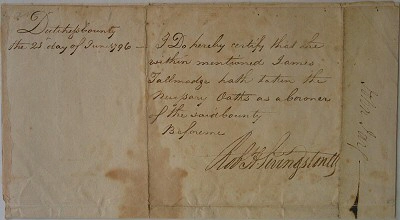 Dutchess County
the 23 day of June 1796 —
I Do hereby certify that the
within mentioned James
Tallmadge hath taken the
Necessary Oaths as a Coroner
of the said County
Before me
Robt. H. Livingston